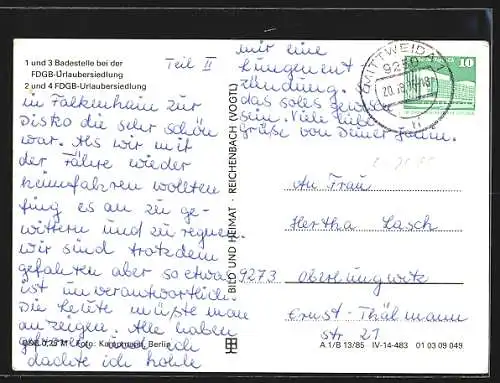 1 und 3 Badestelle bei der
FDGB-Urlaubersiedlung
2 und 4 FDGB-Urlaubersiedlung
Teil II
in Falkenhain zur
Disko die sehr schön
war. Als wir mit
der Fähre wieder
heimfahren wollten
fing es an zu ge-
wittern und zu regnen.
wir sind trotzdem
gefahren aber so etwas
ist unverantwortlich.
Die Leute müßte man
anzeigen. Alle haben
gefroren und ich
dachte ich hohle
mir eine
Lungenent
zündung.
das soles gewesen
sein. Viele liebe
Grüße von Deiner
BILD UND HEIMAT · REICHENBACH (VOGTL)
MITTWEIDA 1
9250
10
An Frau
Hertha Lasch
9273 Oberlungwitz
Ernst-Thälmann
str 21
Foto: Berlin
A 1/B 13/85 IV-14-483 01 03 09 049